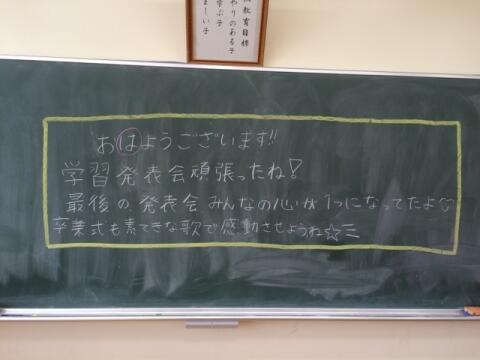 教育目標
やりのある子
学ぶ子
おはようございます!!
学習発表会頑張ったね!
最後の発表会みんなの心が1つになってたよ
卒業式も素てきな歌で感動させようね☆